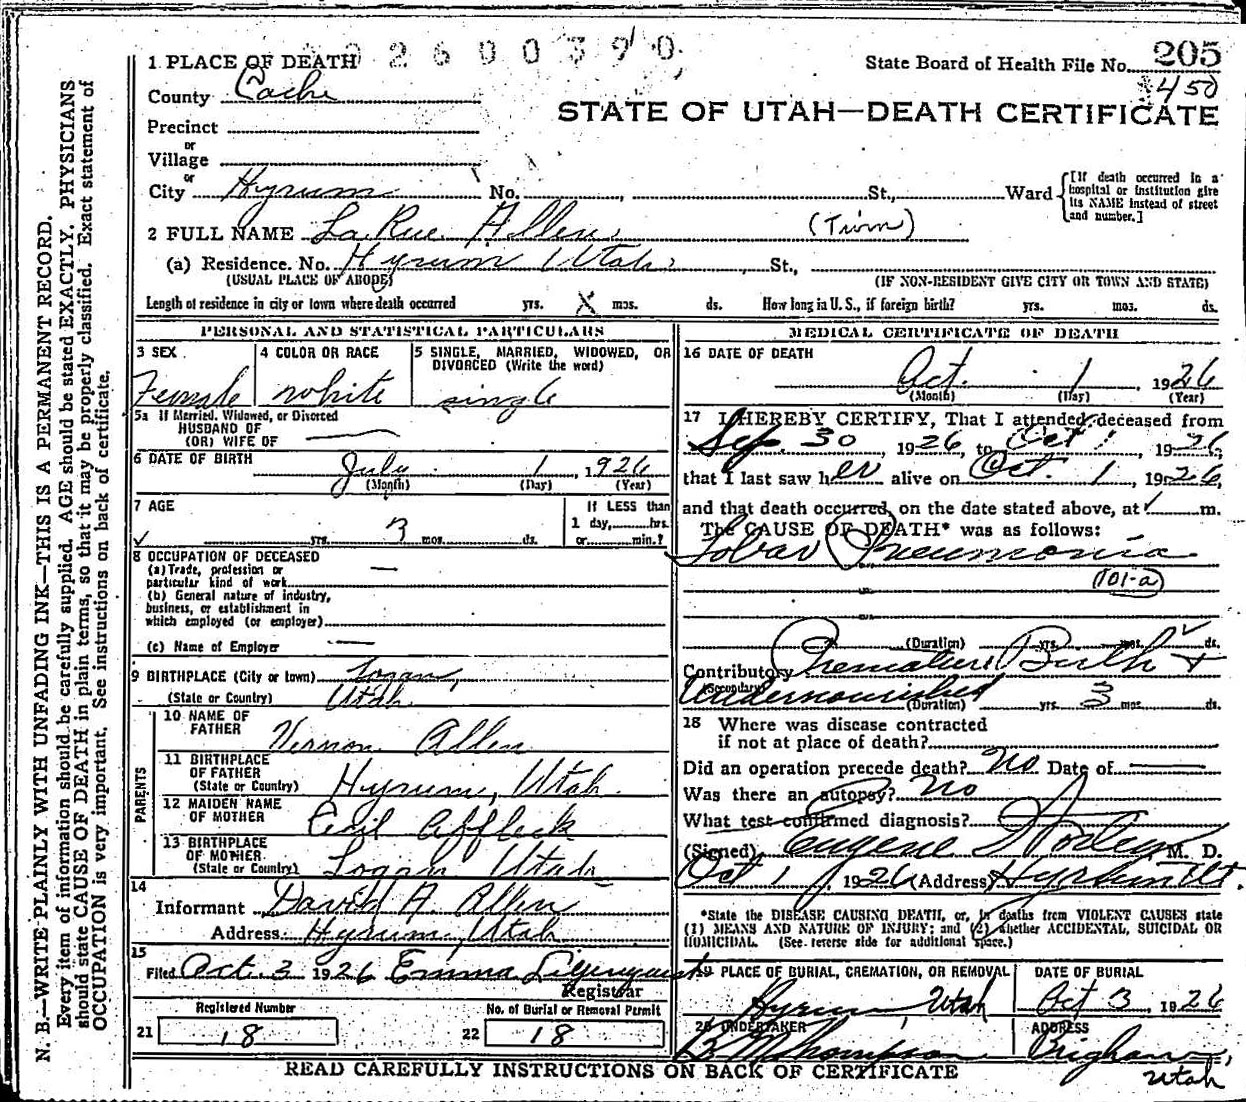 2600390
1 PLACE OF DEATH
State Board of Health File No. 205
450
County Cache
STATE OF UTAH—DEATH CERTIFICATE
Precinct
or
Village
or
City Hyrum No. St., Ward
[If death occurred in a hospital or institution give its NAME instead of street and number.]
2 FULL NAME La Rue Allen (Twin)
(a) Residence. No. Hyrum Utah St.,
(USUAL PLACE OF ABODE) (IF NON-RESIDENT GIVE CITY OR TOWN AND STATE)
Length of residence in city or town where death occurred yrs. X mos. ds. How long in U. S., if foreign birth? yrs. mos. ds.
PERSONAL AND STATISTICAL PARTICULARS
3 SEX
Female
4 COLOR OR RACE
white
5 SINGLE, MARRIED, WIDOWED, OR DIVORCED (Write the word)
single
5a If Married, Widowed, or Divorced
HUSBAND OF
(OR) WIFE OF —
6 DATE OF BIRTH
July 1, 1926
(Month) (Day) (Year)
7 AGE
yrs. 3 mos. ds.
If LESS than
1 day, hrs.
or min.?
8 OCCUPATION OF DECEASED
(a) Trade, profession or
particular kind of work —
(b) General nature of industry,
business, or establishment in
which employed (or employer)
(c) Name of Employer —
9 BIRTHPLACE (City or town) Logan,
(State or Country) Utah
PARENTS
10 NAME OF
FATHER Vernon Allen
11 BIRTHPLACE
OF FATHER
(State or Country) Hyrum, Utah.
12 MAIDEN NAME
OF MOTHER Cecil Affleck
13 BIRTHPLACE
OF MOTHER
(State or Country) Logan Utah
14
Informant David A. Allen
Address Hyrum, Utah
15
Filed Oct. 3 1926 Emma Liljenquist
Registrar
Registered Number
21 18
No. of Burial or Removal Permit
22 18
MEDICAL CERTIFICATE OF DEATH
16 DATE OF DEATH
Oct. 1, 1926
(Month) (Day) (Year)
17 I HEREBY CERTIFY, That I attended deceased from
Sep. 30, 1926, to Oct 1, 1926,
that I last saw her alive on Oct. 1, 1926,
and that death occurred, on the date stated above, at m.
The CAUSE OF DEATH* was as follows:
Lobar Pneumonia
101-a
(Duration) yrs. mos. ds.
Contributory Premature Birth +
(Secondary) Undernourished
(Duration) yrs. 3 mos. ds.
18 Where was disease contracted
if not at place of death?
Did an operation precede death? No Date of —
Was there an autopsy? No
What test confirmed diagnosis?
(Signed) Eugene Worley M. D.
Oct 1, 1926 (Address) Hyrum Ut.
*State the DISEASE CAUSING DEATH, or, in deaths from VIOLENT CAUSES state
(1) MEANS AND NATURE OF INJURY; and (2) whether ACCIDENTAL, SUICIDAL OR
HOMICIDAL. (See reverse side for additional space.)
19 PLACE OF BURIAL, CREMATION, OR REMOVAL
Hyrum, Utah
DATE OF BURIAL
Oct 3 1926
20 UNDERTAKER
B. M. Thompson
ADDRESS
Brigham,
Utah
READ CAREFULLY INSTRUCTIONS ON BACK OF CERTIFICATE
N. B.—WRITE PLAINLY WITH UNFADING INK—THIS IS A PERMANENT RECORD.
Every item of information should be carefully supplied. AGE should be stated EXACTLY. PHYSICIANS
should state CAUSE OF DEATH in plain terms, so that it may be properly classified. Exact statement of
OCCUPATION is very important. See instructions on back of certificate.